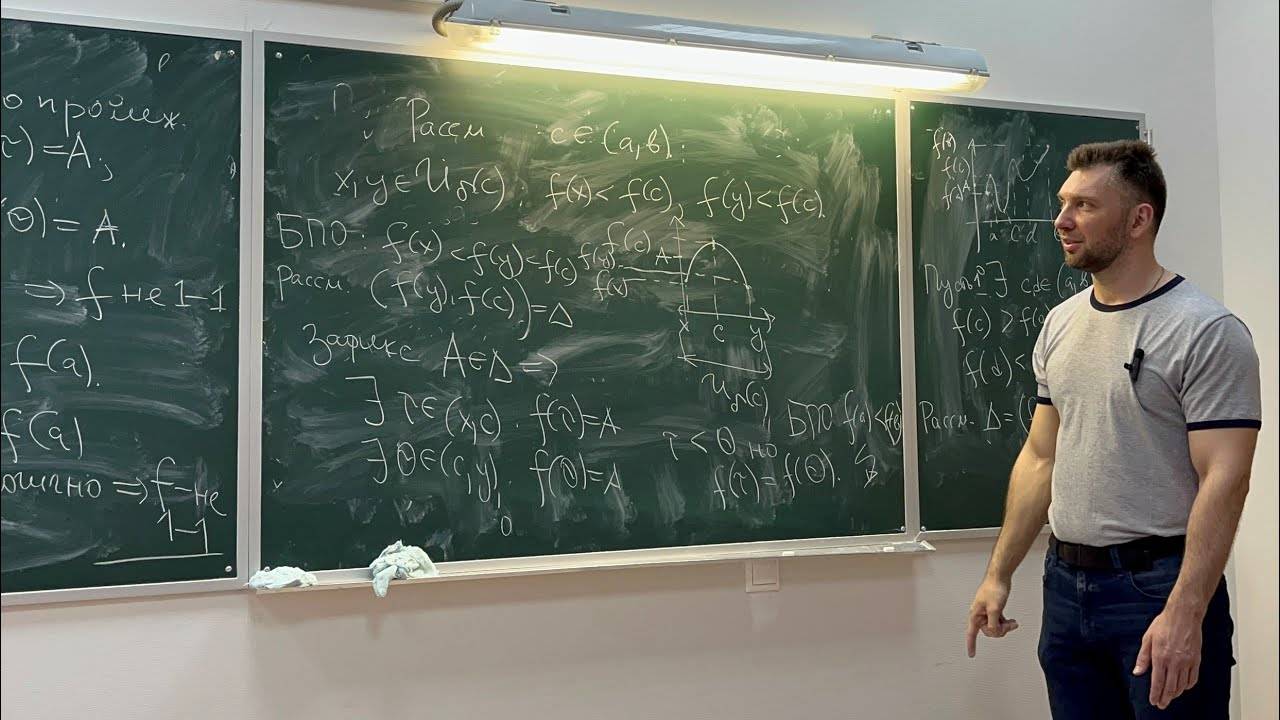 о пролеж.
τ) = A;
θ) = A.
⇒ f не 1-1
f(a).
f(a)
⇒ f-не
1-1
Рассм c ∈ (a,в).
x,y ∈ U (c) f(x) < f(c), f(y) < f(c).
БПО: f(x) < f(y) < f(c)
Рассм. (f(y), f(c)) = Δ
Зафикс A ∈ Δ ⇒
∃ τ ∈ (x,c). f(τ) = A
∃ θ ∈ (c,y), f(θ) = A
f(c)
A
f(y)
f(x)
x c y
U (c)
τ < θ, но
f(τ) = f(θ).
БПО f(a) < f(в)
f(в)
f(c)
A
a c d
Пусть ∃ c,d ∈ (a,в
f(c) ≥ f(
f(d) <
Рассм. Δ = (